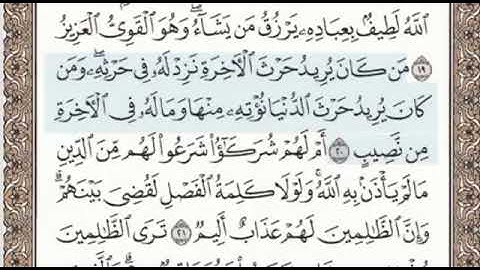 ٱللَّهُ لَطِيفٌۢ بِعِبَادِهِۦ يَرْزُقُ مَن يَشَآءُ ۖ وَهُوَ ٱلْقَوِىُّ ٱلْعَزِيزُ
١٩ مَن كَانَ يُرِيدُ حَرْثَ ٱلْـَٔاخِرَةِ نَزِدْ لَهُۥ فِى حَرْثِهِۦ ۖ وَمَن
كَانَ يُرِيدُ حَرْثَ ٱلدُّنْيَا نُؤْتِهِۦ مِنْهَا وَمَا لَهُۥ فِى ٱلْـَٔاخِرَةِ
مِن نَّصِيبٍ ٢٠ أَمْ لَهُمْ شُرَكَٰٓؤُا۟ شَرَعُوا۟ لَهُم مِّنَ ٱلدِّينِ
مَا لَمْ يَأْذَنۢ بِهِ ٱللَّهُ ۚ وَلَوْلَا كَلِمَةُ ٱلْفَصْلِ لَقُضِىَ بَيْنَهُمْ ۗ
وَإِنَّ ٱلظَّٰلِمِينَ لَهُمْ عَذَابٌ أَلِيمٌ ٢١ تَرَى ٱلظَّٰلِمِينَ